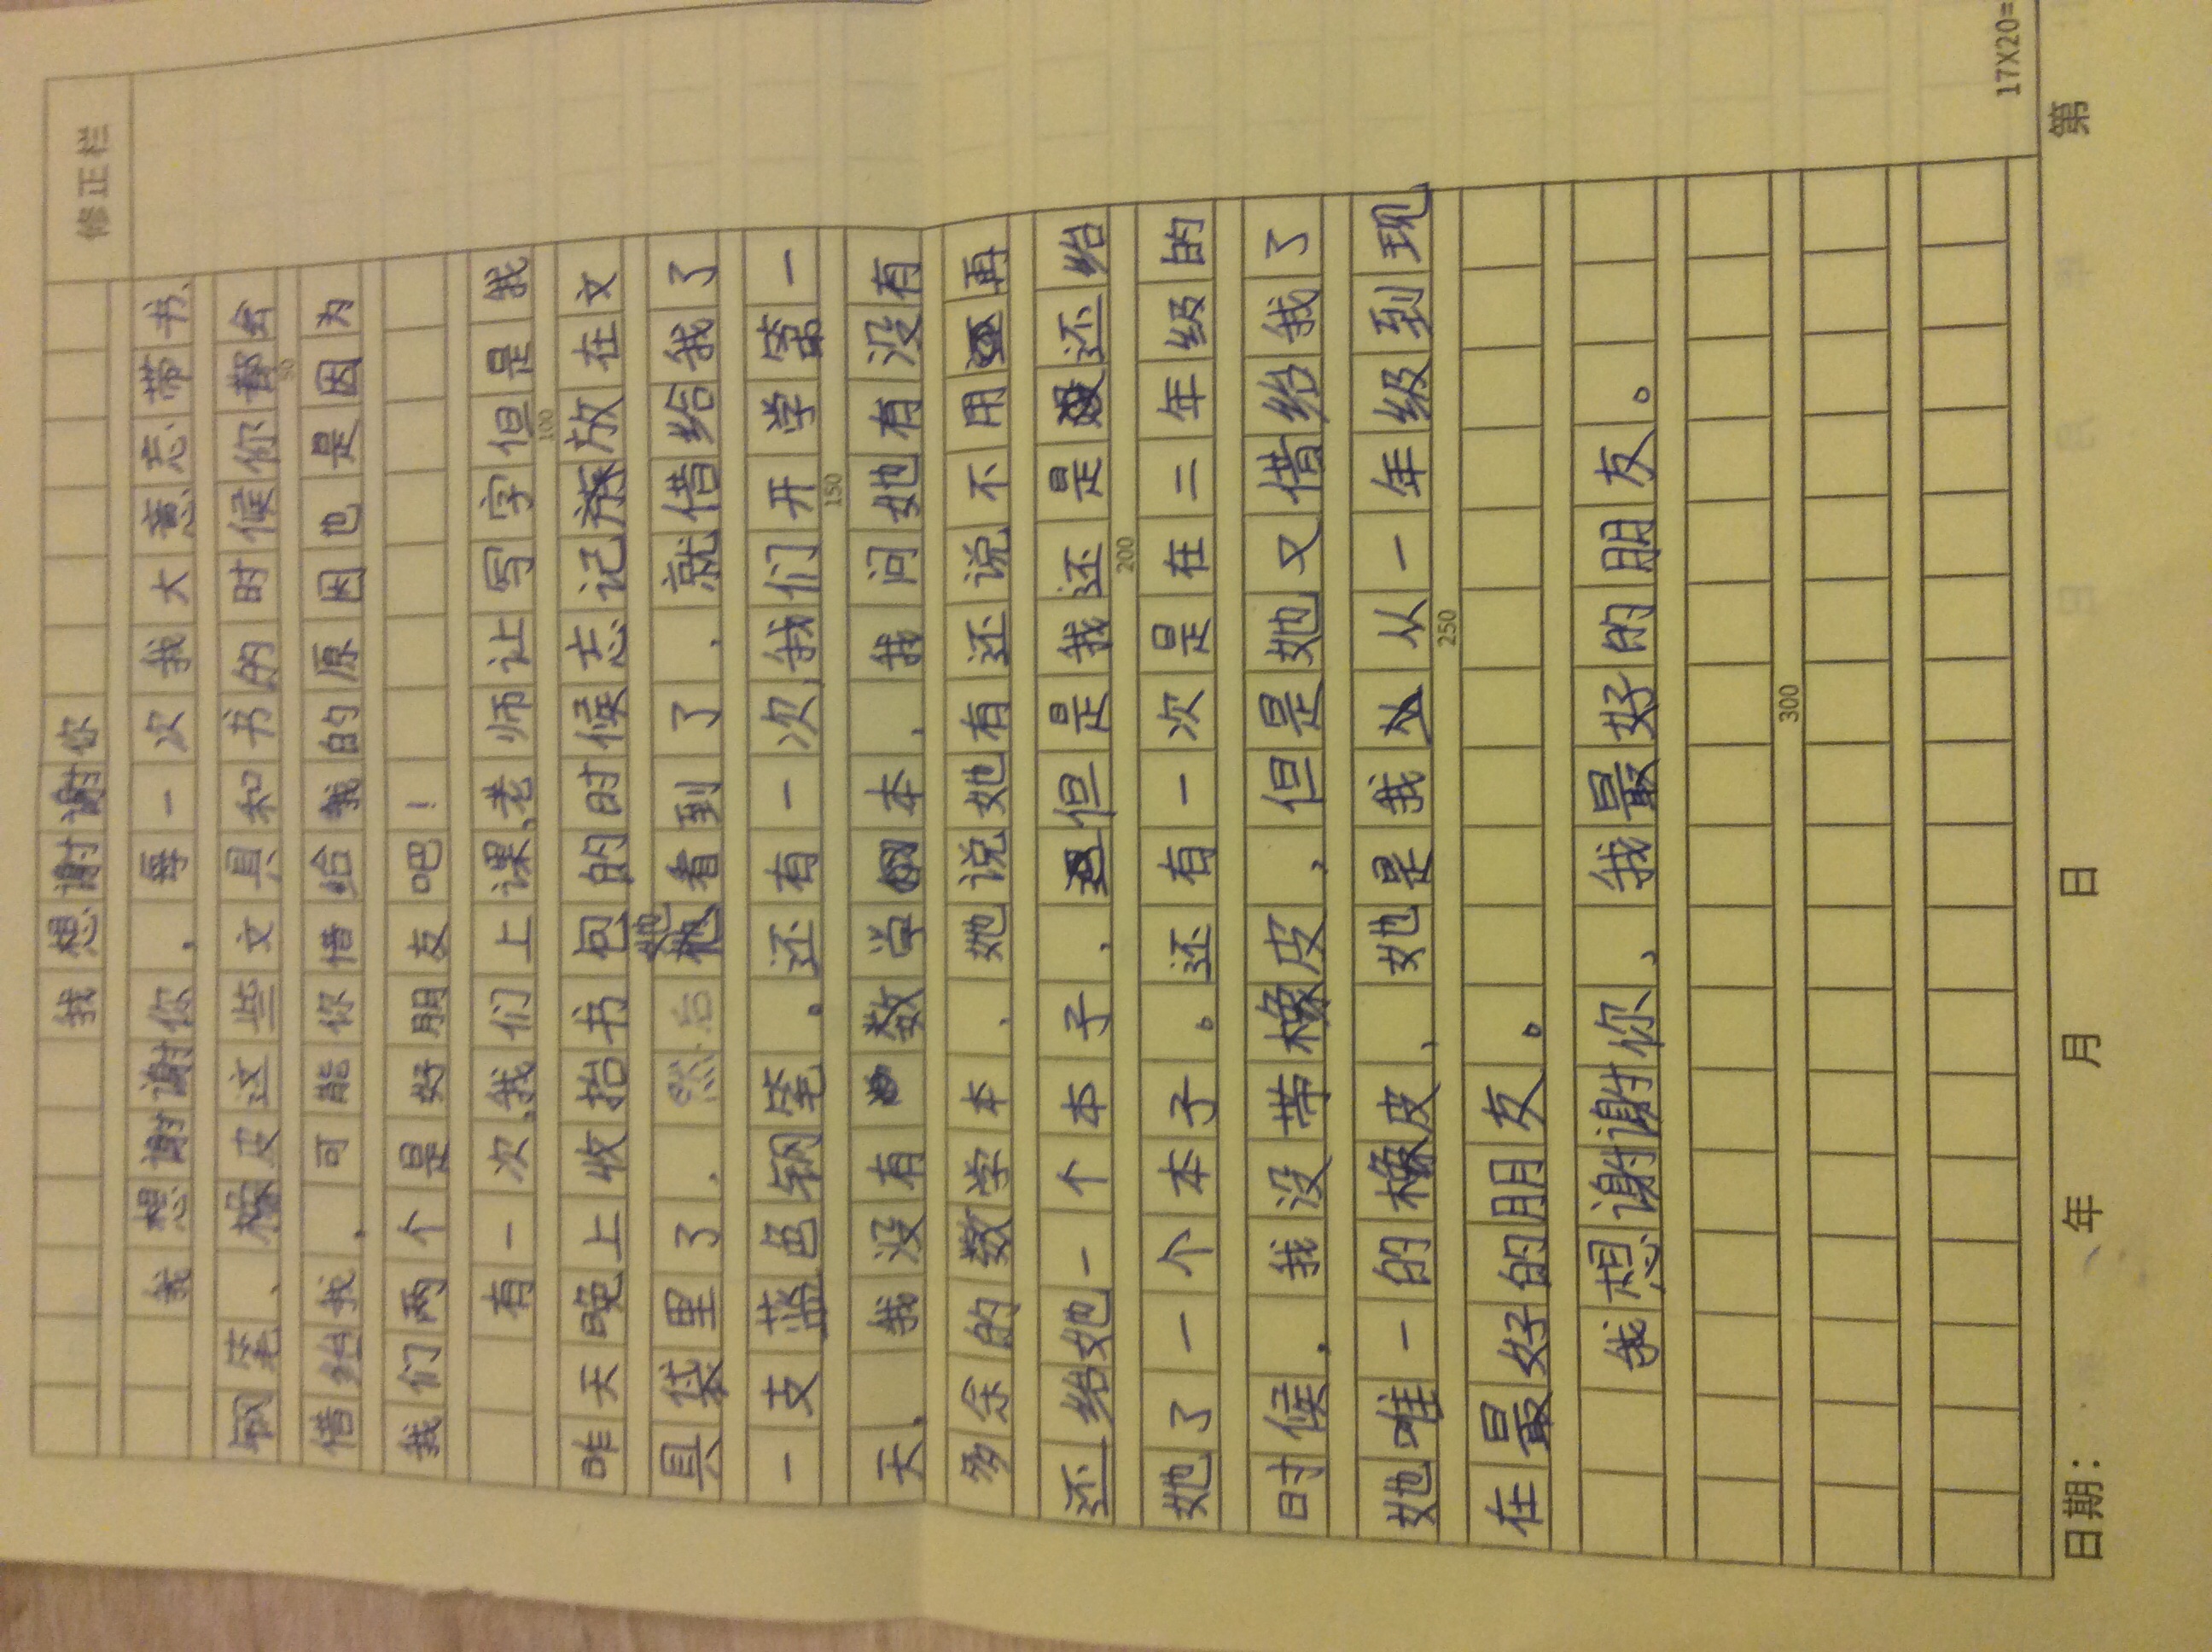 修正栏
我想谢谢你
我想谢谢你，每一次我大意忘带书、
钢笔、橡皮这些文具和书的时候你都会
借给我，可能你借给我的原因也是因为
我们两个是好朋友吧！
有一次，我们上课，老师让写字但是我
昨天晚上收拾书包的时候忘记放在文
具袋里了，然后她看到了，就借给我了
一支蓝色钢笔。还有一次，我们开学第一
天，我没有数学本，我问她有没有
多余的数学本，她说她有还说不用再
还给她一个本子，但是我还是还给
她了一个本子。还有一次是在二年级的
时候，我没带橡皮，但是她又借给我了
她唯一的橡皮，她是我从一年级到现
在最好的朋友。
我想谢谢你，我最好的朋友。
50
100
150
200
250
300
17X20=
日期： 年 月 日 第